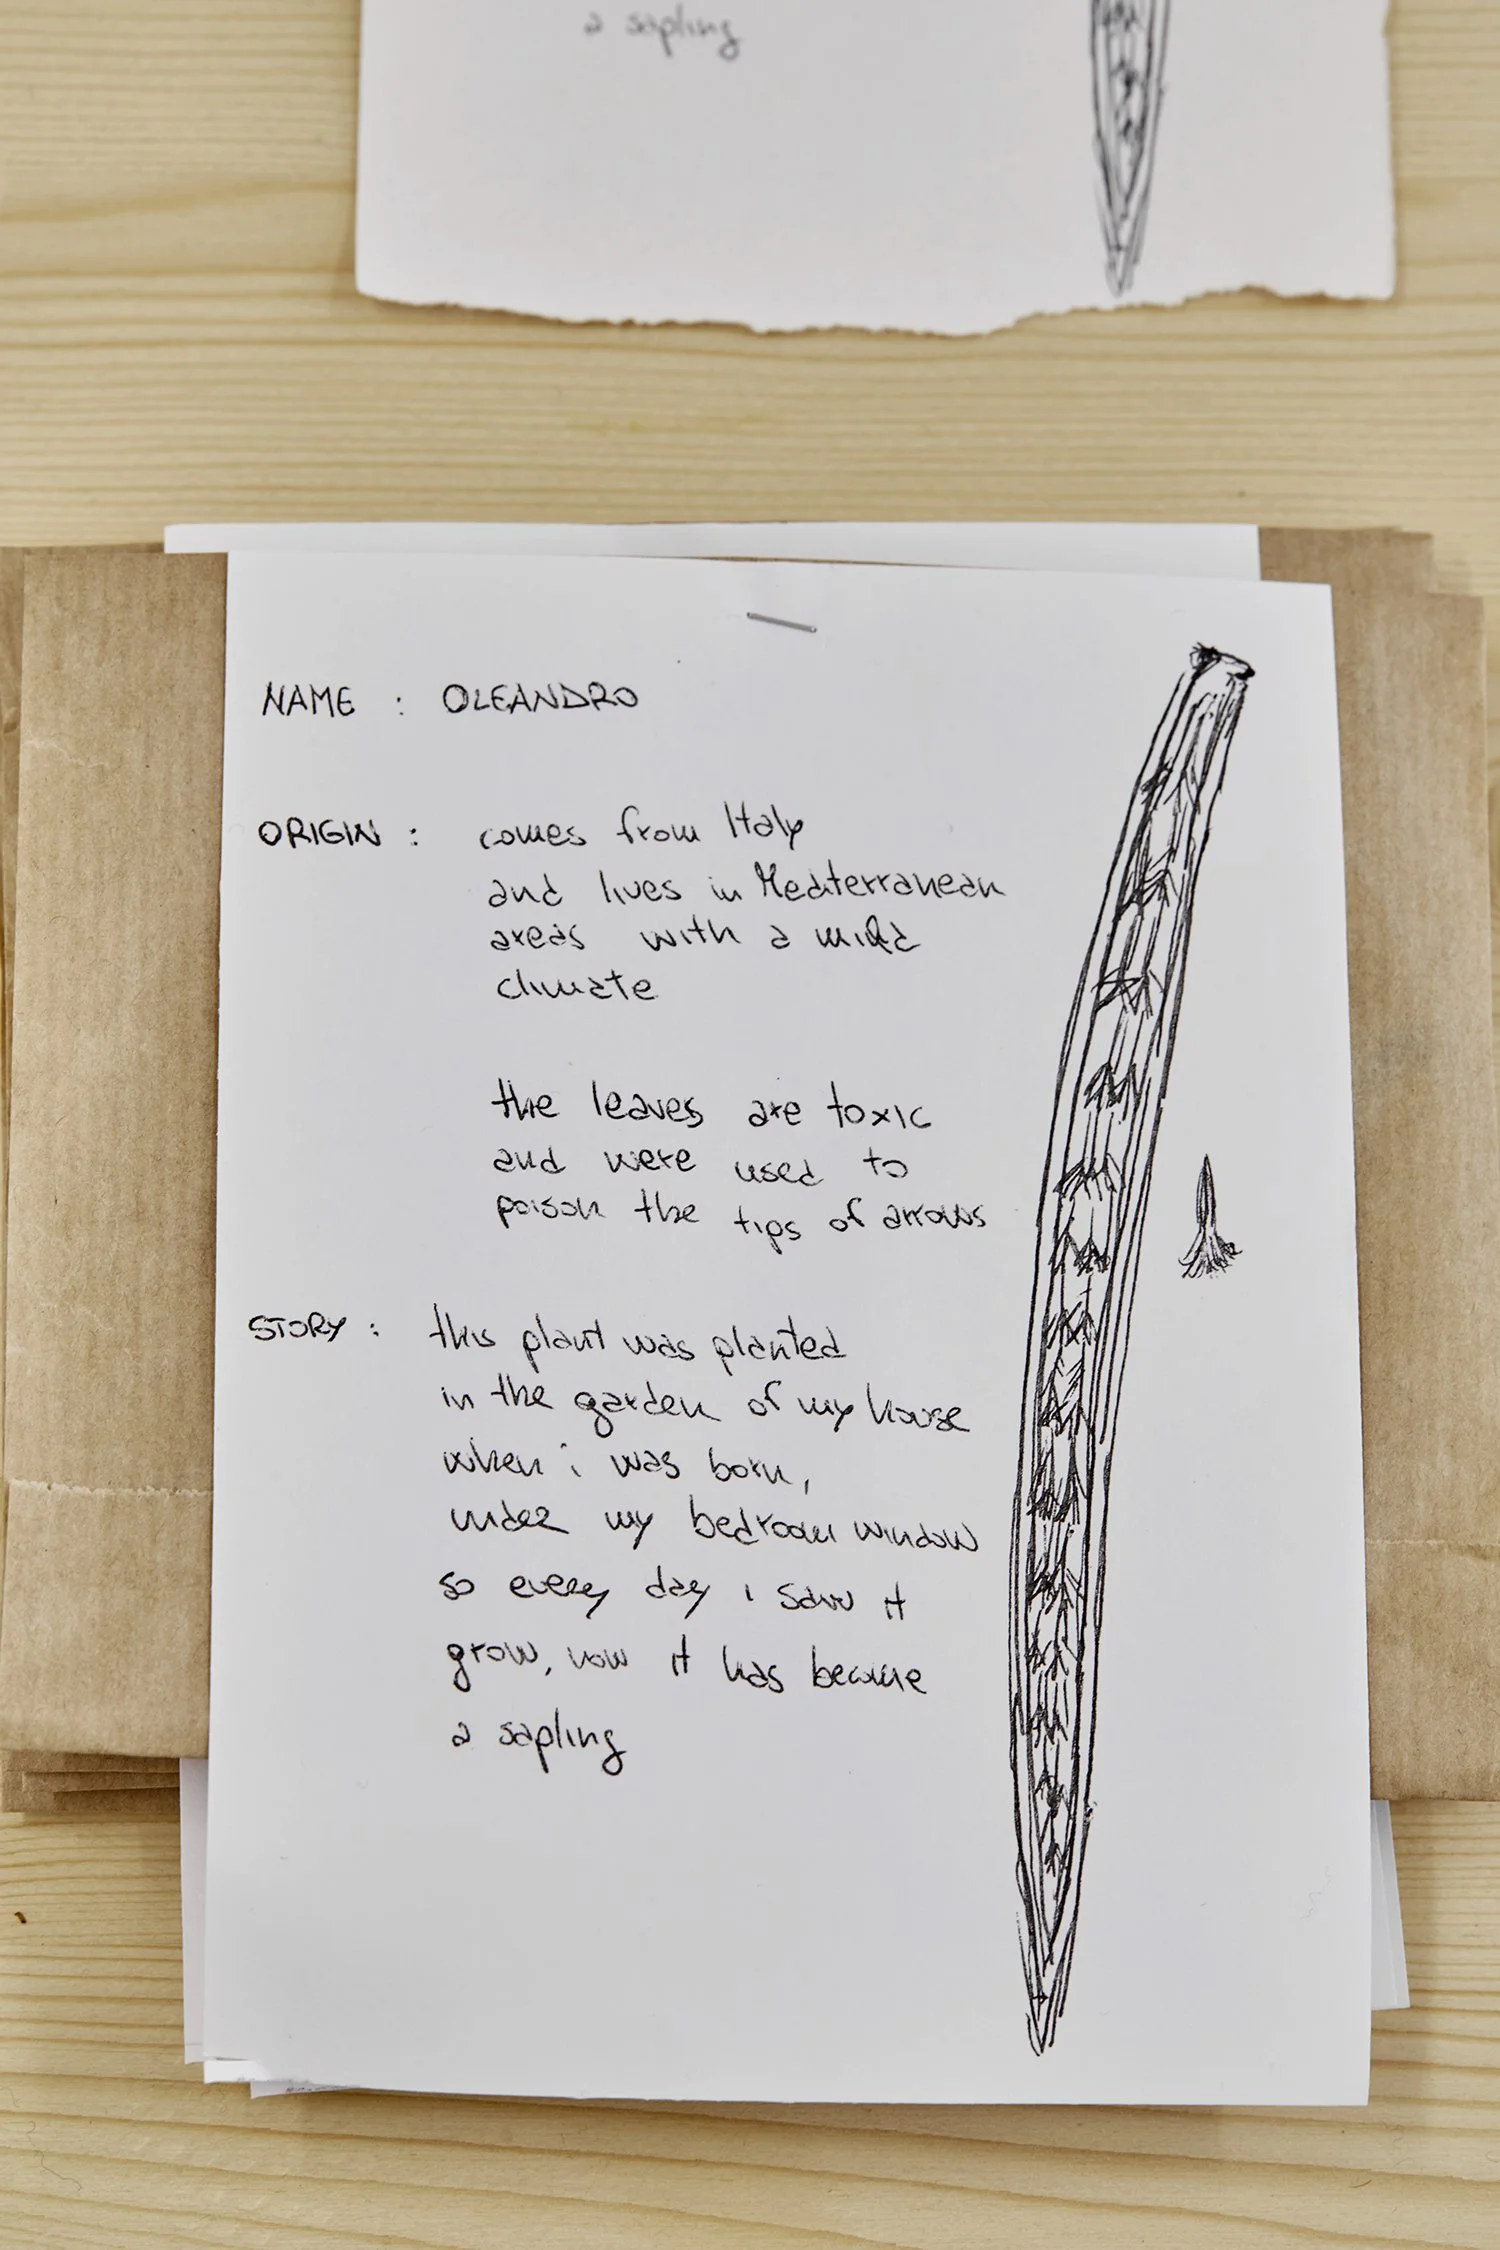 a sapling
NAME : OLEANDRO
ORIGIN : comes from Italy
and lives in Mediterranean
areas with a mild
climate
the leaves are toxic
and were used to
poison the tips of arrows
STORY : this plant was planted
in the garden of my house
when i was born,
under my bedroom window
so every day i saw it
grow, now it has became
a sapling